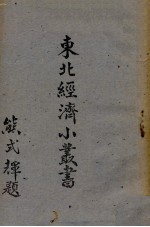 東北經濟小叢書
熊式輝題